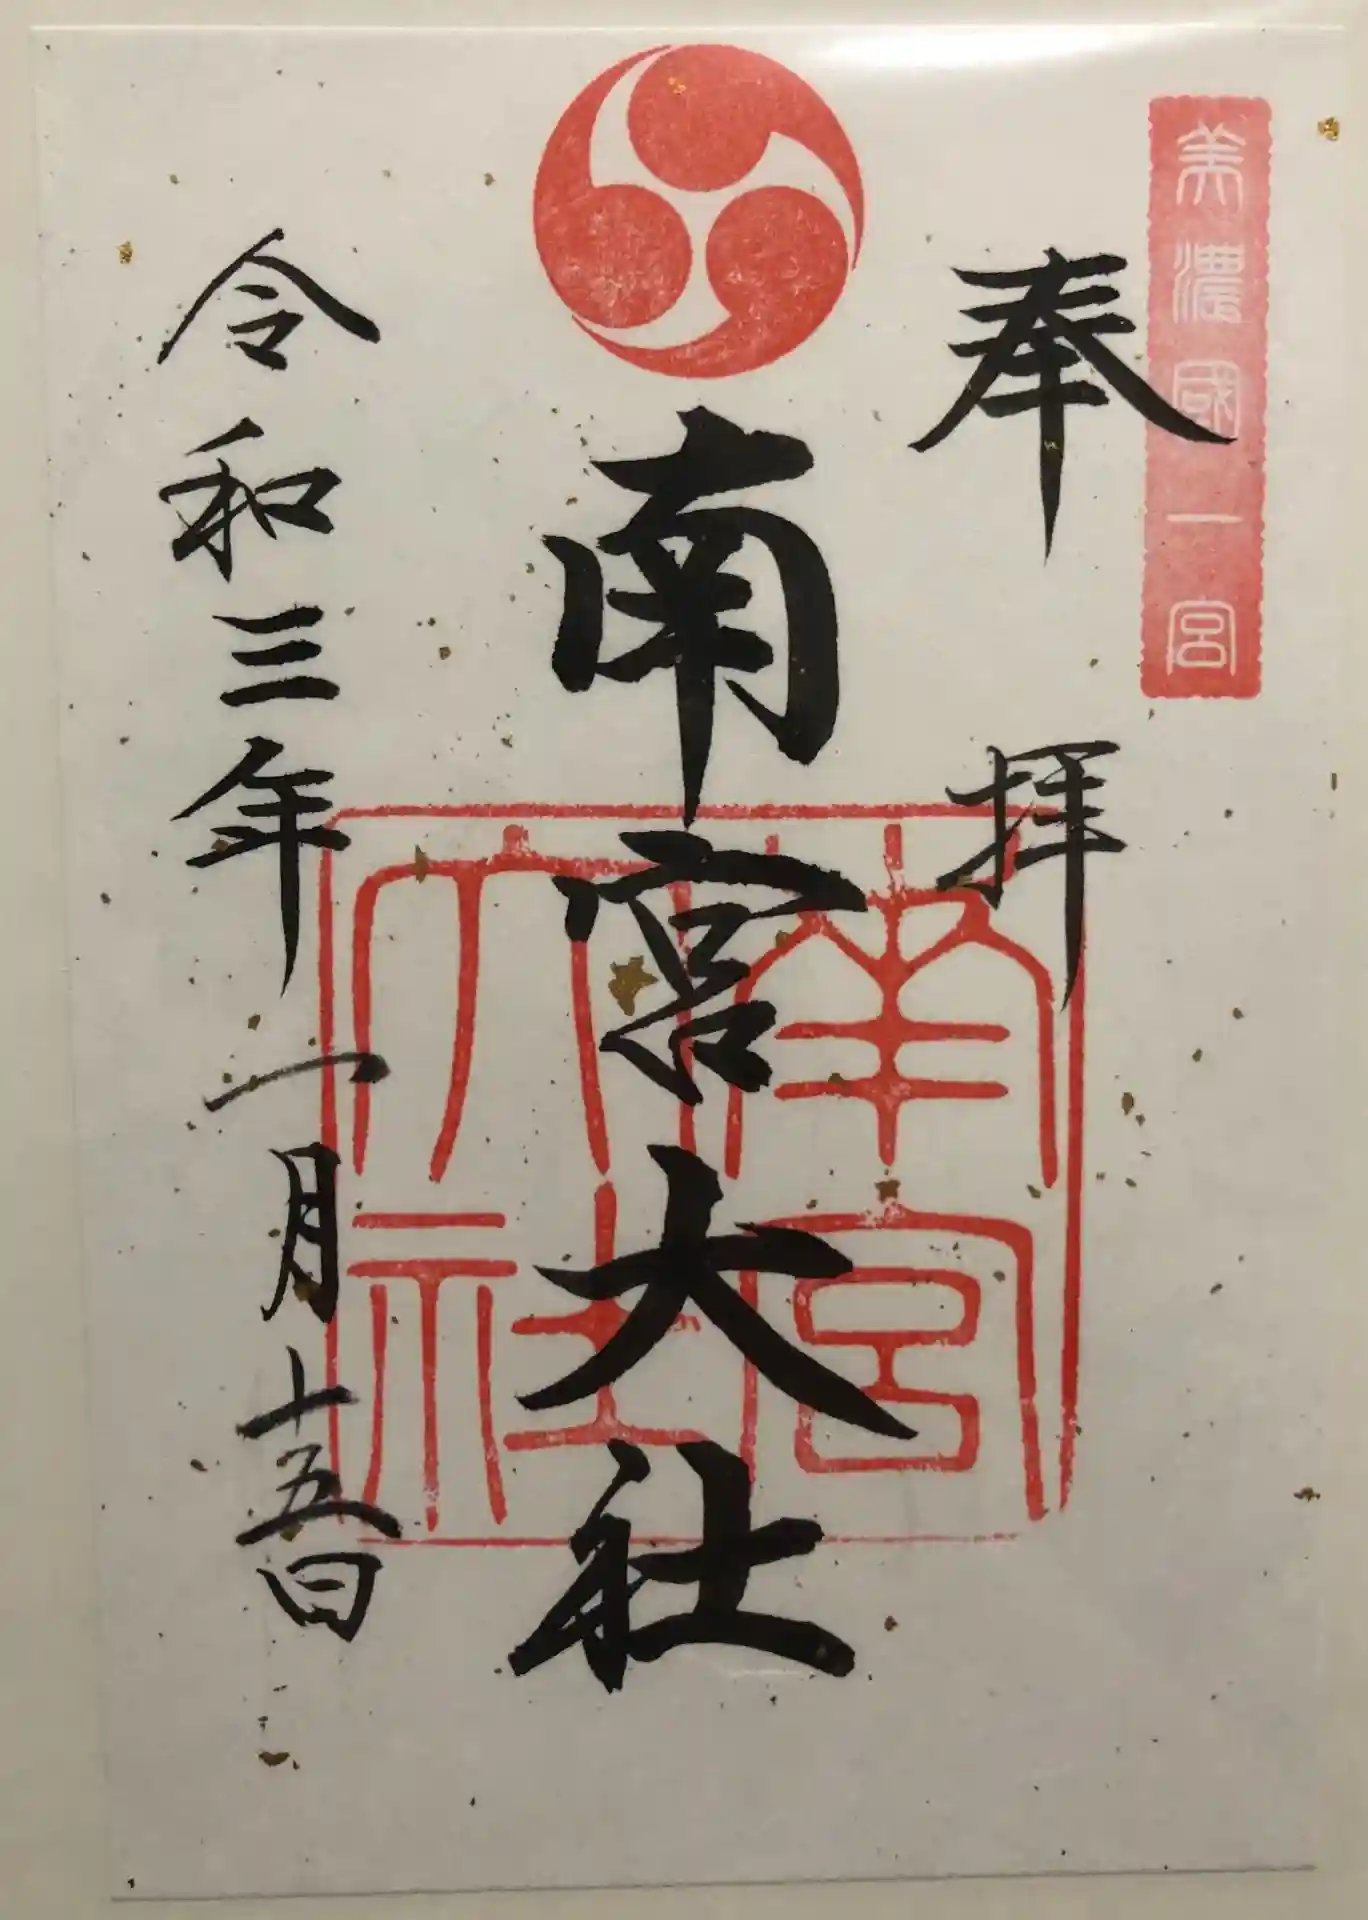 美濃國一宮
奉拝
南宮大社
南宮
大社
令和三年一月十五日